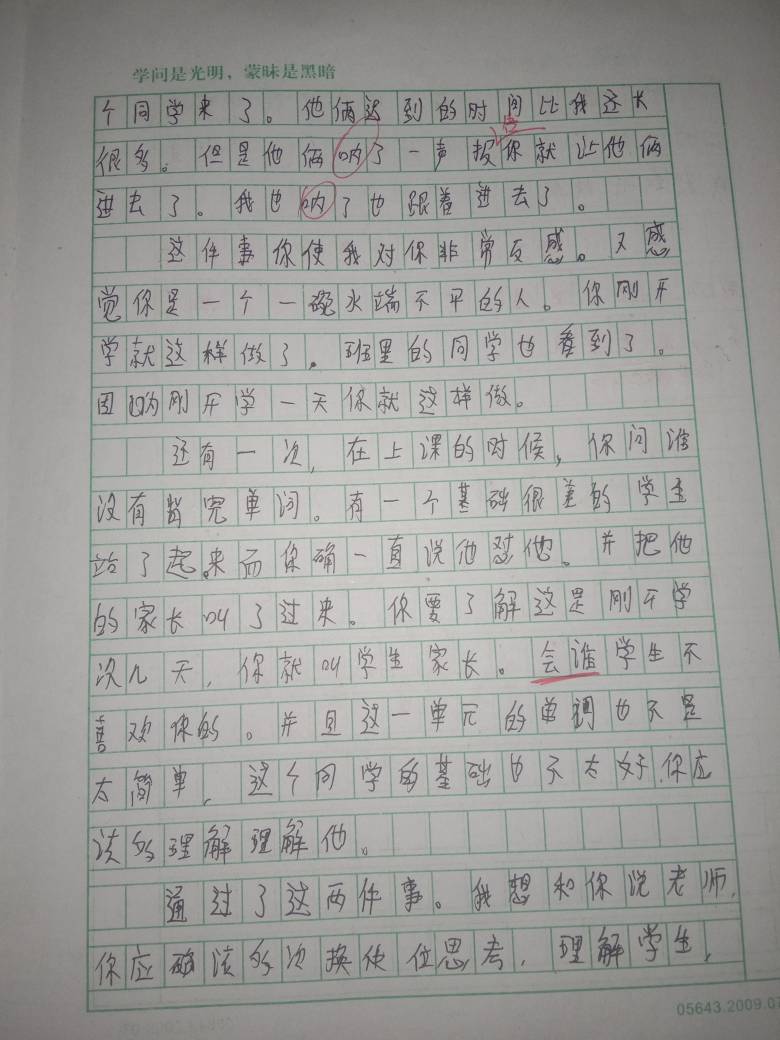 学问是光明，蒙昧是黑暗
个同学来了。他俩达到的时间比我还长
很多。但是他俩呐了一声报告你就让他俩
进去了。我也呐了也跟着进去了。
这件事你使我对你非常反感。又感
觉你是一个一碗水端不平的人。你刚开
学就这样做了。班里的同学也看到了。
因为刚开学一天你就这样做。
还有一次，在上课的时候，你问谁
没有背完单词。有一个基础很差的学生
站了起来而你确一直说他怼他。并把他
的家长叫了过来。你要了解这是刚开学
没几天，你就叫学生家长。会谁学生不
喜欢你的。并且这一单元的单词也不是
太简单，这个同学的基础也不太好，你应
该多理解理解他。
通过了这两件事。我想和你说老师，
你应该多次换位思考，理解学生，
05643.2009.07